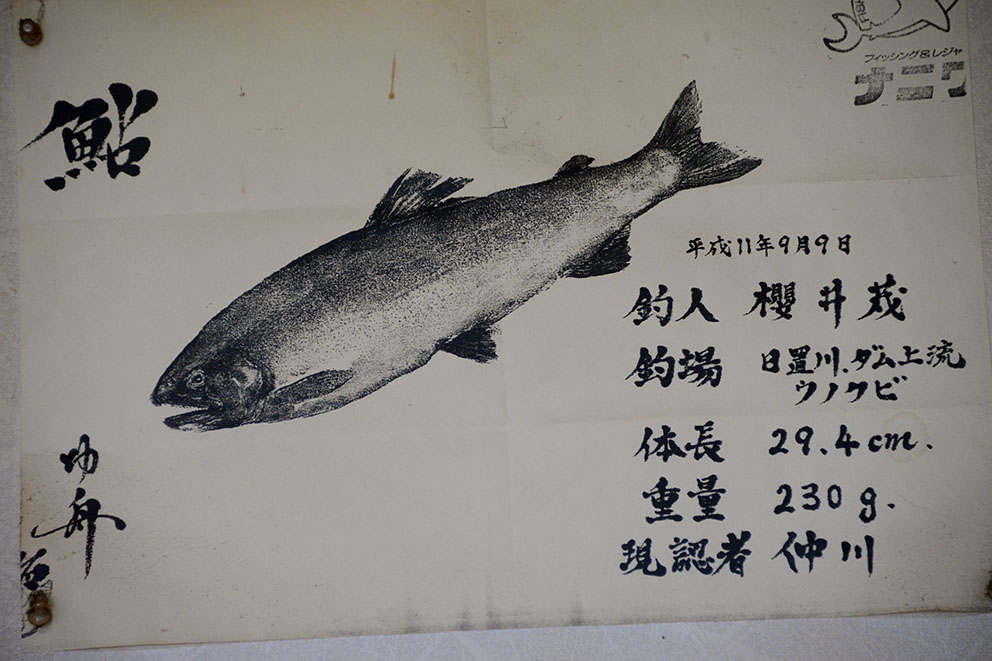 鮎
フィッシング&レジャ
ナニワ
平成11年9月9日
釣人 櫻井茂
釣場 日置川.ダム上流
ウノクビ
体長 29.4cm.
重量 230g.
現認者 仲川